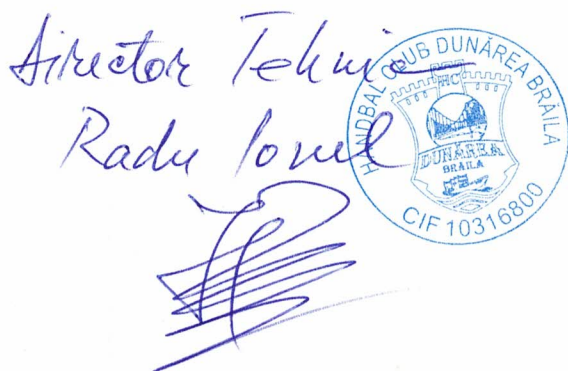 Director Tehnic
Radu Ionel
HANDBAL CLUB DUNĂREA BRĂILA
HC
DUNĂREA
BRAILA
CIF 10316800